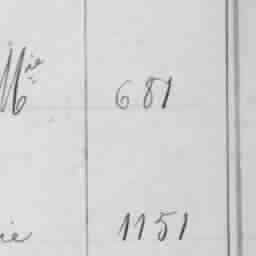 Mie 681
ie 1151